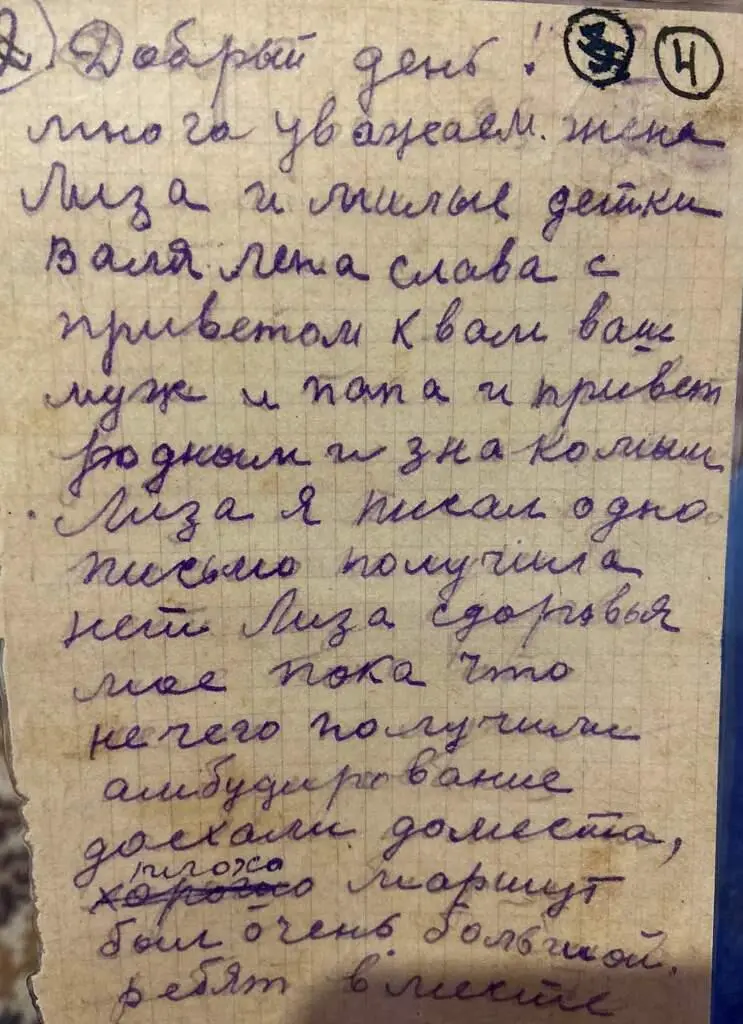 2) Добрый день! 4
много уважаем. жена
Лиза и милые детки
Валя Лена слава с
приветом к вам ваш
муж и папа и привет
родным и знакомым
Лиза я писал одно
письмо получила
нет Лиза сдоровья
мое пока что
нечего получили
амбудирование
доехали доместа,
плохо маршут
был очень большой.
ребят вместе